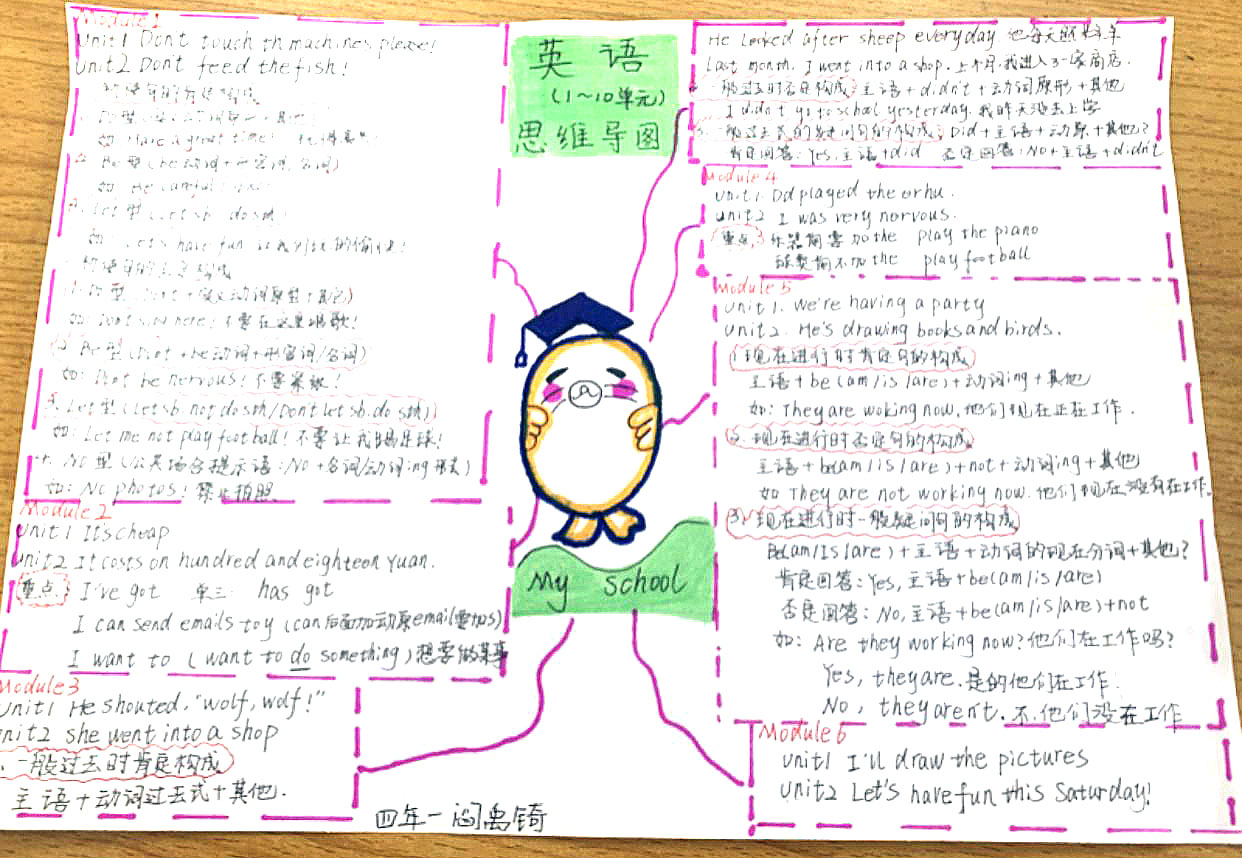 Module 1
Unit1 Don't touch th machines please!
Unit2 Don't feed the fish!
如 Have a great time!
Be 型
如 Be careful!
Let 型 (Let sb. do sth.
如: Let's have fun
如: Don't sing here! 不要在这里唱歌!
② Be 型 (Don't + be动词+形容词/名词)
如: Don't be nervous! 不要紧张!
3. Let 型 (Let sb. not do sth/Don't let sb. do sth)
如: Let me not play football! 不要让我踢足球!
4. No 型 (公共场合提示语: No +名词/动词ing 形式)
如: No photos! 禁止拍照
Module 2
Unit1 It's cheap
Unit2 It costs on hundred and eighteen yuan.
重点: I've got 单三: has got
I can send emails to y (can后面加动原email要加s)
I want to ( want to do something ) 想要做某事
Module 3
Unit1 He shouted, "wolf, wolf!"
Unit2 she went into a shop
一般过去时肯定构成
主语+动词过去式+其他.
英语
(1~10单元)
思维导图
My school
四年一 闫禹锜
He looked after sheep everyday 他每天照
Last month. I went into a shop. 上个月,我进入了一家商店.
一般过去时否定构成: 主语+didn't+动词原形+其他
I didn't go to school yesterday. 我昨天没去上学
一般过去式的疑问句的构成: Did+主语+动原+其他?
肯定回答: Yes, 主语+did 否定回答: No+主语+didn't
Module 4
Unit1. Dd played the erhu.
Unit2 I was very nervous.
重点: 乐器前要加the play the piano
球类前不加the play football
Module 5
Unit1. We're having a party
Unit2. He's drawing books and birds.
1. 现在进行时肯定句的构成
主语+be(am/is/are)+动词ing+其他
如: They are woking now. 他们现在正在工作.
2. 现在进行时否定句的构成
主语+be(am/is/are)+not+动词ing+其他
如 They are not working now. 他们现在没有在工作.
3. 现在进行时一般疑问句的构成
Be(am/Is/are)+主语+动词的现在分词+其他?
肯定回答: Yes, 主语+be(am/is/are)
否定回答: No, 主语+be(am/is/are)+not
如: Are they working now? 他们在工作吗?
Yes, they are. 是的他们在工作.
No, they aren't. 不.他们没在工作
Module 6
Unit1 I'll draw the pictures
Unit2 Let's have fun this Saturday!